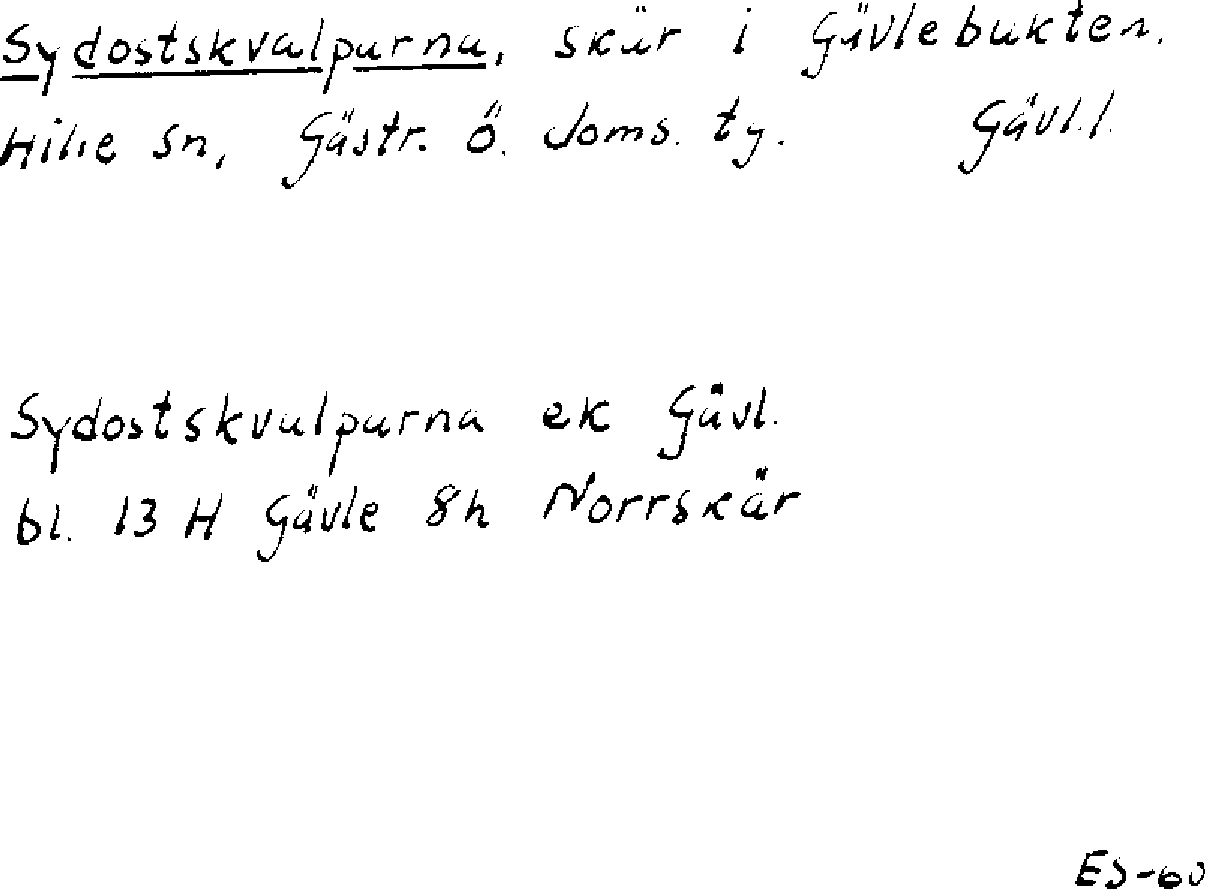 Sydostskvalparna, skär i Gävlebukten.
Hille sn, Gästr. ö. doms. tg. Gävl.l.
Sydostskvalparna ek Gävl.
bl. 13 H Gävle 8h Norrskär
ES-60